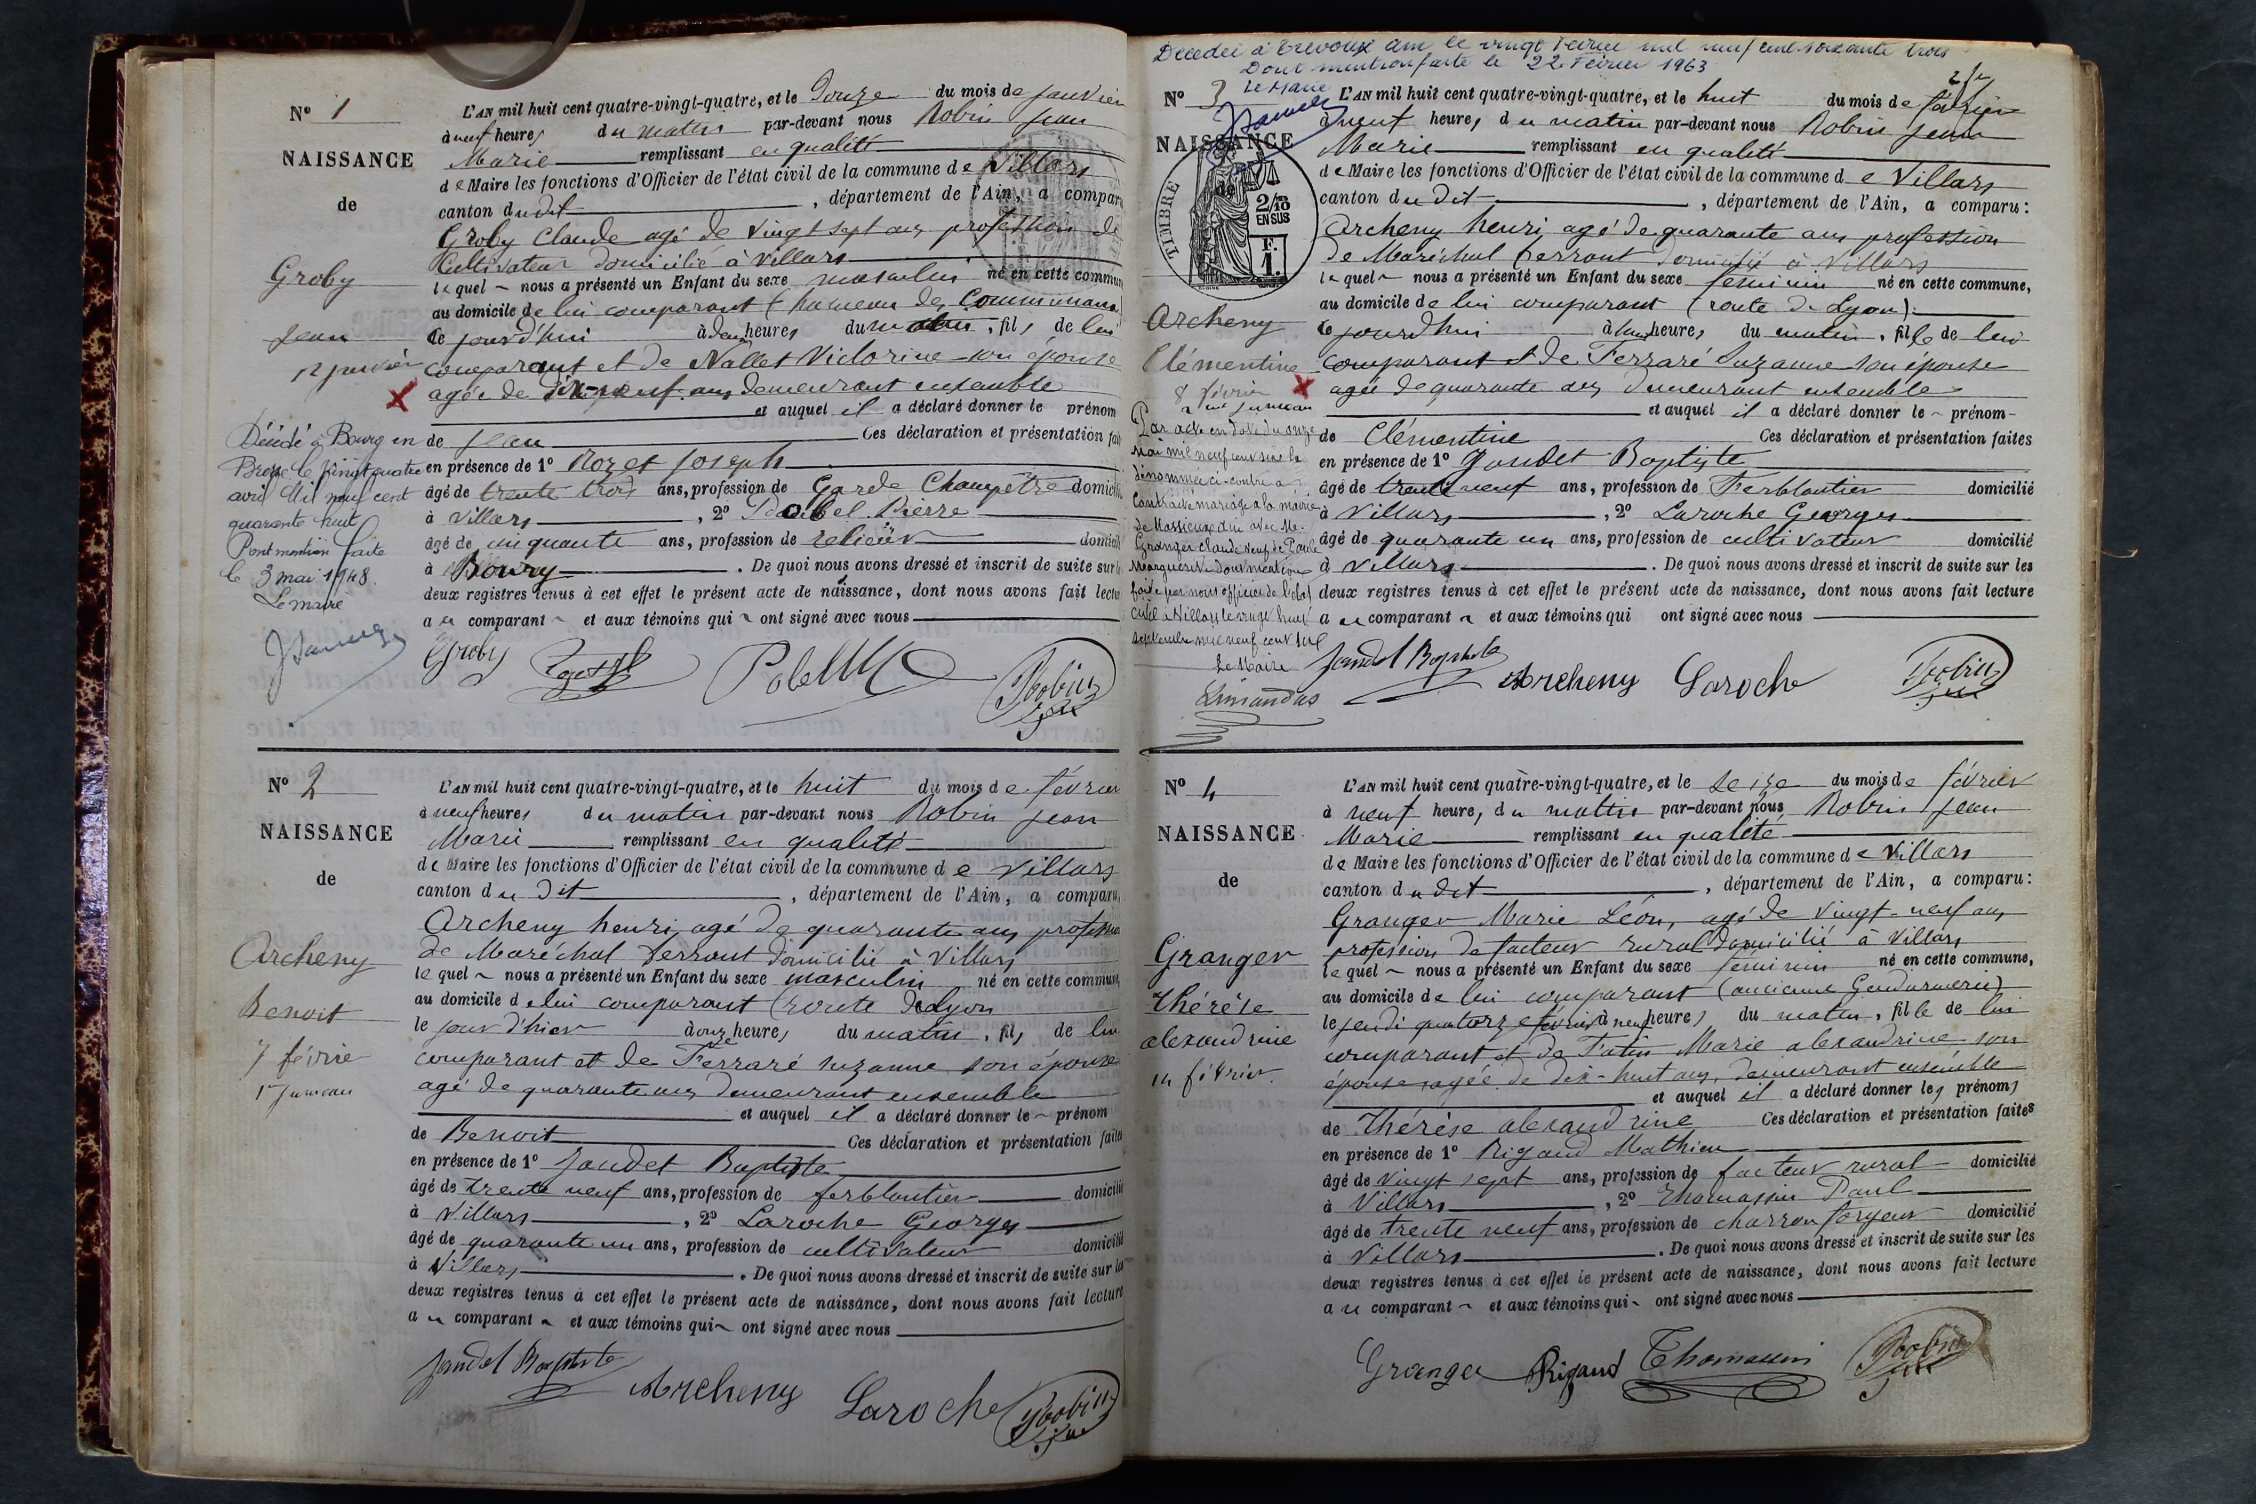 N° 1
NAISSANCE
de
Groby
Jean
12 janvier
Décédé à Bourg en
Bresse le vingt quatre
avril Mil neuf cent
quarante huit
Dont mention faite
le 3 mai 1948.
Le maire
L'AN mil huit cent quatre-vingt-quatre, et le Douze du mois de janvier
à neuf heures du matin par-devant nous Robin Jean
Marie remplissant en qualité
de Maire les fonctions d'Officier de l'état civil de la commune de Villars
canton dudit, département de l'Ain, a comparu
Groby Claude agé de vingt sept ans profession de
Cultivateur domicilié à Villars
lequel nous a présenté un Enfant du sexe masculin né en cette commune
au domicile de lui comparant (hameau des Communaux)
ce jourd'hui à deux heures du matin, fils de lui
comparant et de Nallet Victorine son épouse
agée de dix-neuf ans demeurant ensemble
et auquel il a déclaré donner le prénom
de Jean Ces déclaration et présentation fait
en présence de 1° Rozet Joseph
âgé de trente trois ans, profession de Garde Champêtre domicili
à Villars, 2° Pierre
âgé de cinquante ans, profession de relieur domicili
à Bourg. De quoi nous avons dressé et inscrit de suite sur l
deux registres tenus à cet effet le présent acte de naissance, dont nous avons fait lectu
au comparant et aux témoins qui ont signé avec nous
Groby Robin
N° 2
NAISSANCE
de
Archeny
Benoit
7 févrie
1er Jumeau
L'AN mil huit cent quatre-vingt-quatre, et le huit du mois de février
à neuf heures du matin par-devant nous Robin Jean
Marie remplissant en qualité
de Maire les fonctions d'Officier de l'état civil de la commune de Villars
canton du dit, département de l'Ain, a comparu,
Archeny henri, agé de quarante ans profession
de Maréchal ferrant domicilié à Villars
lequel nous a présenté un Enfant du sexe masculin né en cette commune,
au domicile de lui comparant (route de Lyon
le jour d'hier à onze heures du matin, fils de lui
comparant et de Ferraré suzanne son épouse
agé de quarante ans demeurant ensemble
et auquel il a déclaré donner le prénom
de Benoit Ces déclaration et présentation faites
en présence de 1° Jandet Baptiste
âgé de trente neuf ans, profession de ferblantier domicilié
à Villars, 2° Laroche Georges
âgé de quarante un ans, profession de cultivateur domicilié
à Villars. De quoi nous avons dressé et inscrit de suite sur les
deux registres tenus à cet effet le présent acte de naissance, dont nous avons fait lecture
au comparant et aux témoins qui ont signé avec nous
Jandet Baptiste Archeny Laroche Robin
Décédée à Trévoux Ain le vingt février mil neuf cent soixante trois
Dont mention faite le 22 Février 1963
Le Maire
N° 3
NAISSANCE
de
TIMBRE
2/10
EN SUS
F.
1.
Archeny
Clémentine
8 février
2eme Jumeau
Par acte en date du onze
mai mil neuf cent seize la
dénommée ci-contre a
contracté mariage à la mairie
de Massieux Ain avec Mr.
Granger Claude veuf de Paule
Marguerite Dont mention
faite par nous officier de l'état
civil à Villars le vingt huit
septembre mil neuf cent seize
Le Maire
L'AN mil huit cent quatre-vingt-quatre, et le huit du mois de février
à neuf heures du matin par-devant nous Robin Jean
Marie remplissant en qualité
de Maire les fonctions d'Officier de l'état civil de la commune de Villars
canton du dit, département de l'Ain, a comparu:
Archeny henri, agé de quarante ans profession
de Maréchal ferrant domicilié à Villars
lequel nous a présenté un Enfant du sexe féminin né en cette commune,
au domicile de lui comparant (route de Lyon)
ce jourd'hui à heures du matin, fille de lui
comparant et de Ferraré Suzanne son épouse
agée de quarante ans demeurant ensemble
et auquel il a déclaré donner le prénom
de Clémentine Ces déclaration et présentation faites
en présence de 1° Jandet Baptiste
âgé de trente neuf ans, profession de Ferblantier domicilié
à Villars, 2° Laroche Georges
âgé de quarante un ans, profession de cultivateur domicilié
à Villars. De quoi nous avons dressé et inscrit de suite sur les
deux registres tenus à cet effet le présent acte de naissance, dont nous avons fait lecture
au comparant et aux témoins qui ont signé avec nous
Jandet Baptiste Archeny Laroche Robin
N° 4
NAISSANCE
de
Granger
Thérèse
alexandrine
14 février.
L'AN mil huit cent quatre-vingt-quatre, et le seize du mois de février
à neuf heures, du matin par-devant nous Robin Jean
Marie remplissant en qualité
de Maire les fonctions d'Officier de l'état civil de la commune de Villars
canton du dit, département de l'Ain, a comparu:
Granger Marie Léon, agé de vingt-neuf ans
profession de facteur rural domicilié à Villars
lequel nous a présenté un Enfant du sexe féminin né en cette commune,
au domicile de lui comparant (ancienne Gendarmerie)
le jeudi quatorze février à neuf heures du matin, fille de lui
comparant et de Fatin Marie alexandrine son
épouse agée de dix-huit ans, demeurant ensemble
et auquel il a déclaré donner les prénoms
de Thérèse alexandrine Ces déclaration et présentation faites
en présence de 1° Rigaud Mathieu
âgé de vingt sept ans, profession de facteur rural domicilié
à Villars, 2° Thomassin Paul
âgé de trente neuf ans, profession de charron forgeur domicilié
à Villars. De quoi nous avons dressé et inscrit de suite sur les
deux registres tenus à cet effet le présent acte de naissance, dont nous avons fait lecture
au comparant et aux témoins qui ont signé avec nous
Granger Rigaud Thomassin Robin